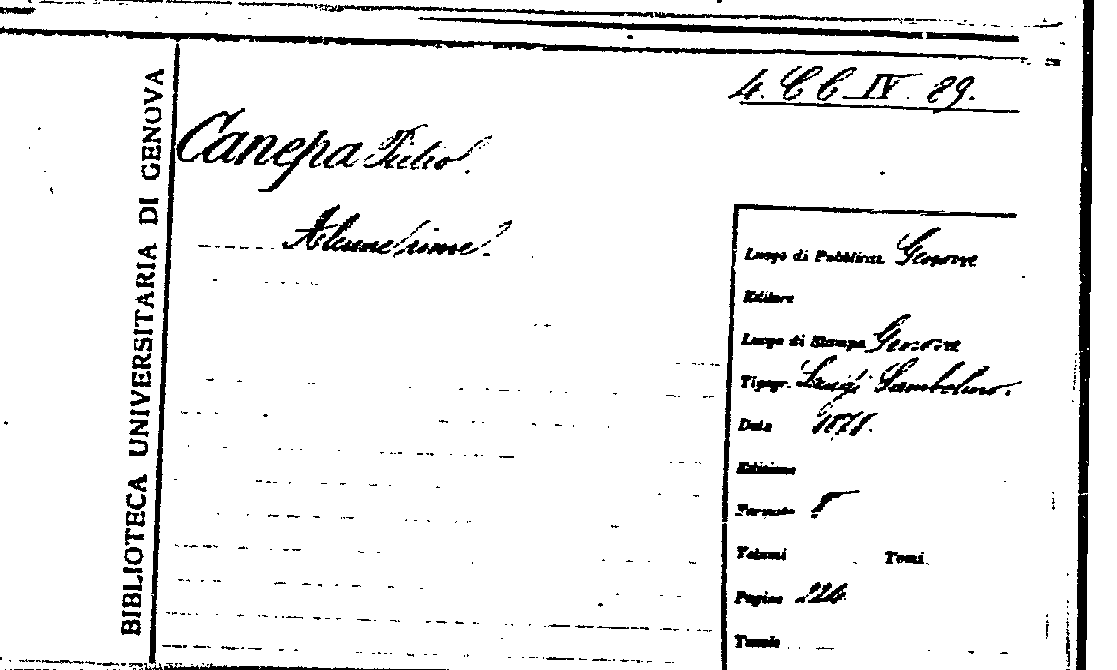 BIBLIOTECA UNIVERSITARIA DI GENOVA
4. C C IV. 89.
Canepa
Alcune rime.
Luogo di Pubblicaz. Genova
Editore
Luogo di Stampa Genova
Tipogr. Luigi Sambolino.
Data 1871.
Edizione
Formato 8°
Volumi Tomi
Pagine 224
Tavole